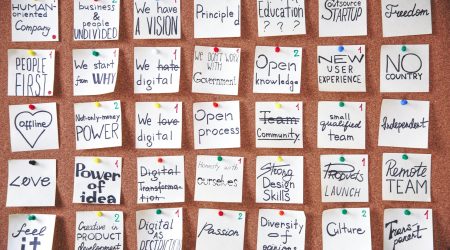 Human-
oriented
Company.
business
&
people
UNDIVIDED
We have
A VISION
Principled
Education
???
OUTSOURCE
STARTUP
Freedom
PEOPLE
FIRST
2
We start
from WHY
1
We hate
digital
We DON'T WORK
with
Government
2
Open
knowledge
1
NEW
USER
EXPERIENCE
NO
COUNTRY
offline
2
Not-only-money
POWER
1
We love
digital
Open
process
Team
Community
1
small
qualified
team
Independent
Love
1
Power
of idea
1
Digital
Transforma-
tion
Honesty with
ourselves
Strong
Design
Skills
LAUNCH
1
Remote
TEAM
feel it
2
Creative in
PRODUCT
development
Digital
2
Passion
2
Diversity
of
opinions
Culture
Trans-
parent